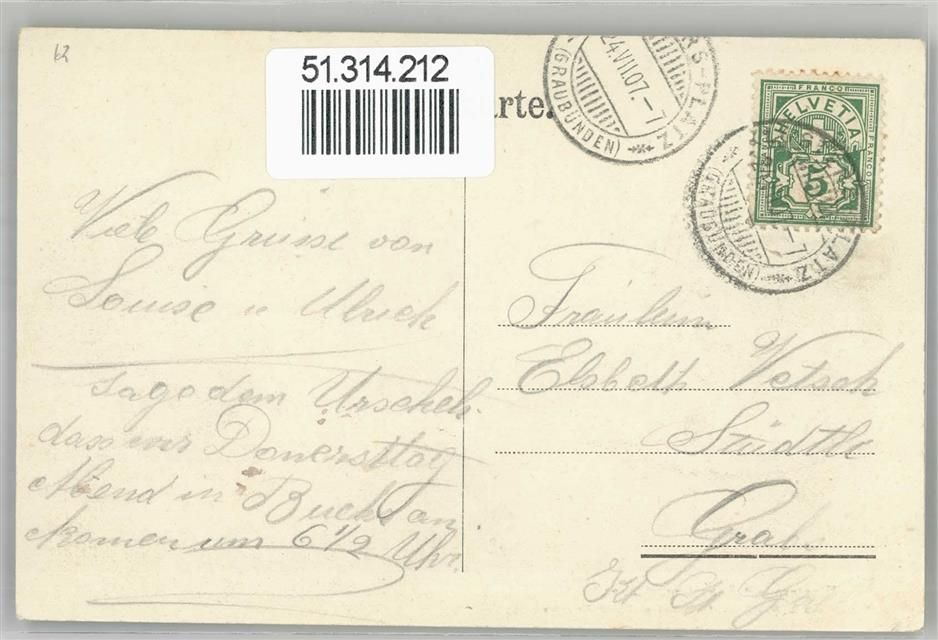 62
51.314.212
arte.
RS-PLATZ
24.VII.07.-7
(GRAUBÜNDEN)
FRANCO
HELVETIA
FRANCO
5
LATZ
(GRAUBÜNDEN)
Viele Grüsse von
Louise u Ulrich
Sage dem Urscheli
dass wir Donersttag
Abend in Buchs an
komen um 6 1/2 Uhr.
Fräulein
Elsbeth Vetsch
Städtli
Grabs
Kt St Gal